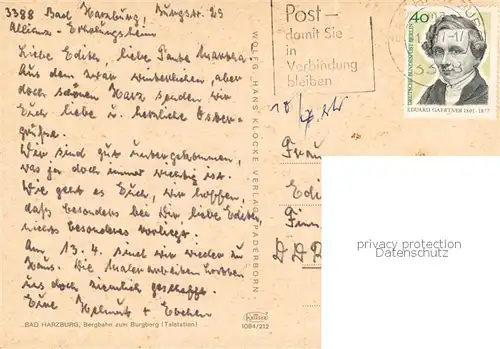 3388 Bad Harzburg, Burgstr. 25
Allianz-Erholungsheim
Liebe Edith, liebe Tante Martha
Aus dem zwar winterlichen, aber
doch schönen Harz senden wir
Euch liebe u. herzliche Oster-
grüße.
Wir sind gut untergekommen,
was ja doch immer wichtig ist.
Wie geht es Euch, wir hoffen,
daß besonders bei Dir liebe Edith,
nichts besonderes vorliegt.
Am 13.4. sind wir wieder zu
Haus. Die Malerarbeiten hatten
uns doch ziemlich geschafft.
Eure Helmut +
BAD HARZBURG, Bergbahn zum Burgberg (Talstation)
WOLFG. HANS KLOCKE VERLAG PADERBORN
1084/212
Post-
damit Sie
in
Verbindung
bleiben
40
DEUTSCHE BUNDESPOST BERLIN
EDUARD GAERTNER 1801-1877
Frau
DDR
privacy protection
www.oldthing.com